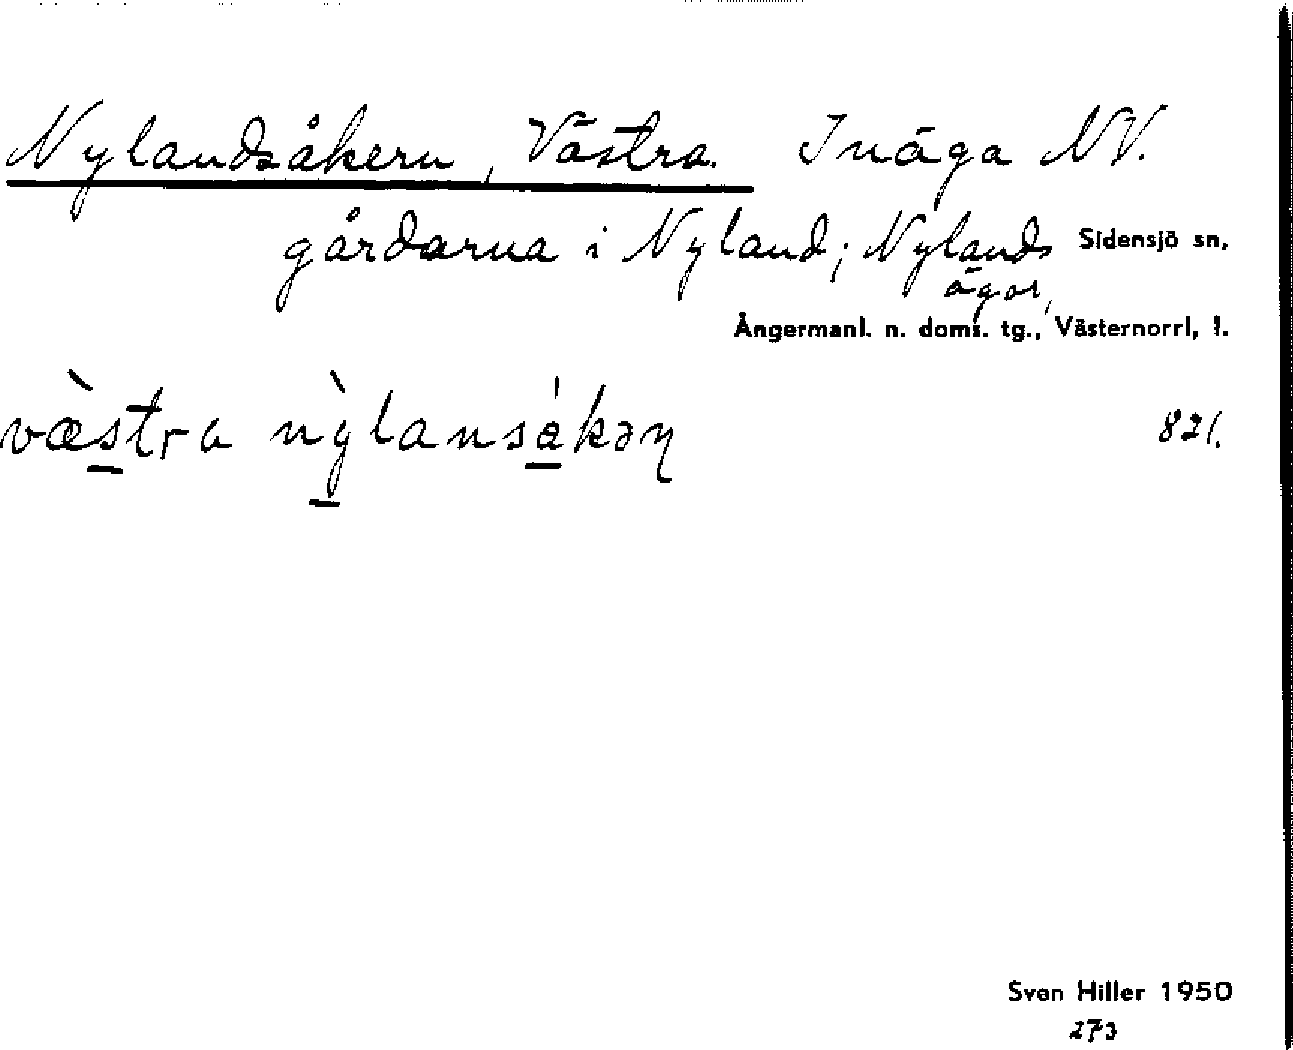 Nylandsåkern, Västra. Inäga NV.
gårdarna i Nyland; Nylands Sidensjö sn,
ägor,
Ångermanl. n. doms. tg., Västernorrl, l.
væ̀stra nỳlansákəɳ 821.
Sven Hiller 1950
273